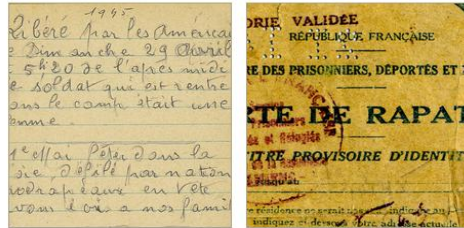 1945
Libéré par les América
Dimanche 29 Avril
5h20 de l'après midi
e soldat qui est rentré
ans le camp était une
emme.
1er Mai fêter dans la
oie, défilé par nation
drapeaux en tête
à nos famil
ORIE VALIDÉE
RÉPUBLIQUE FRANÇAISE
RE DES PRISONNIERS, DÉPORTÉS ET
TE DE RAPAT
TITRE PROVISOIRE D'IDENTIT
résidence ne serait pas
indiquez ci dessous votre adresse actuelle